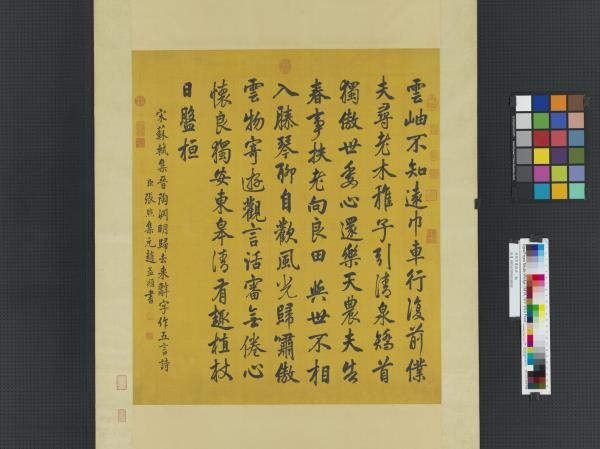 雲岫不知遠巾車行復前僕
夫尋老木稚子引清泉矯首
獨傲世委心還樂天農夫告
春事扶老向良田 與世不相
入膝琴聊自歡風光歸嘯傲
雲物寄遊觀言話審无倦心
懷良獨安東皋清有趣植杖
日盤桓
宋蘇軾集晉陶淵明歸去來辭字作五言詩
臣張照集元趙孟頫書